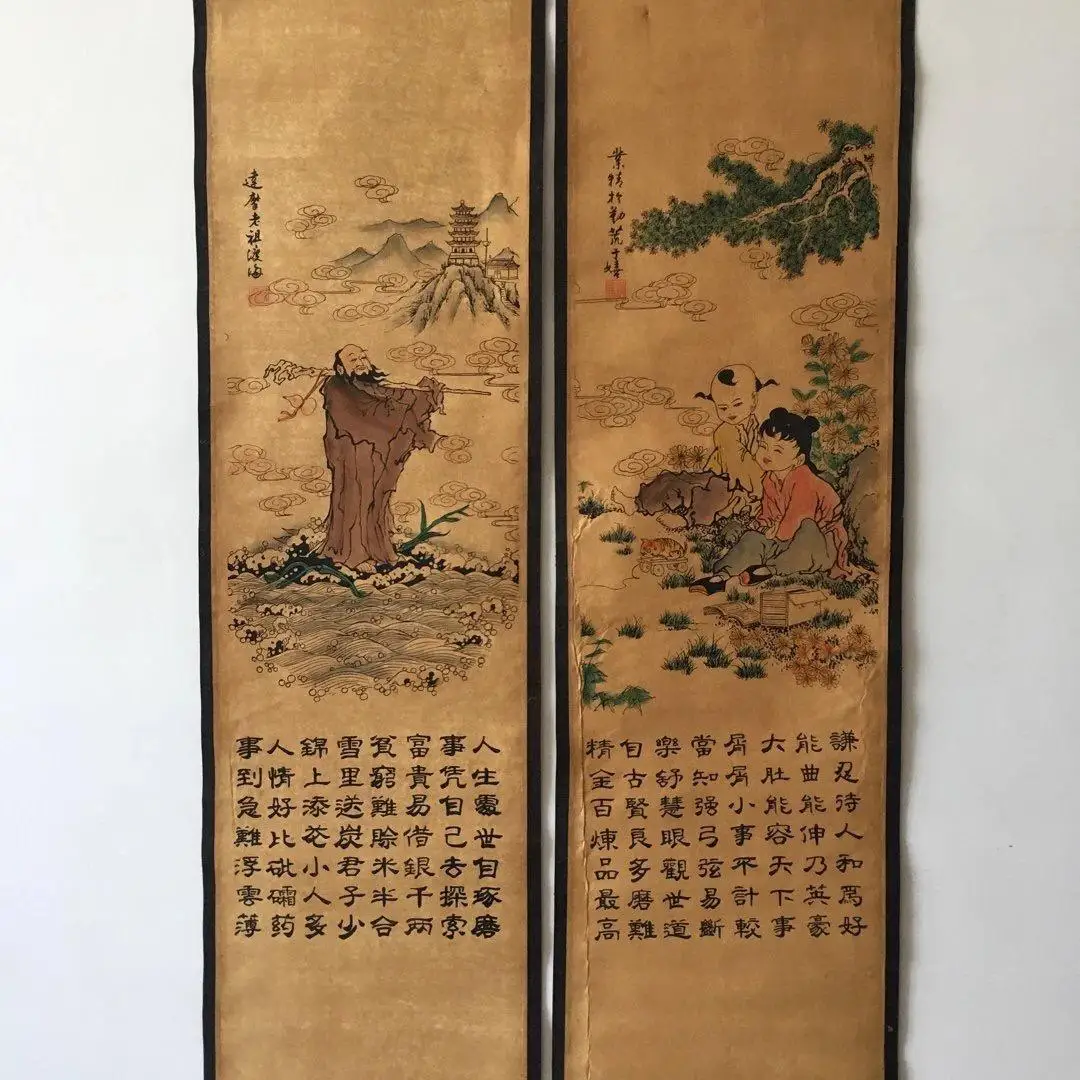 業精扵勤荒于嬉
謙忍待人和爲好
能曲能伸乃英豪
大肚能容天下事
屑屑小事不計較
當知强弓弦易斷
樂舒慧眼觀世道
自古賢良多磨難
精金百煉品最高
達摩老祖渡海
人生處世自琢磨
事凭自己去探索
富貴易借銀千兩
貧窮難賒米半合
雪里送炭君子少
錦上添花小人多
人情好比砒礵药
事到急難浮雲薄